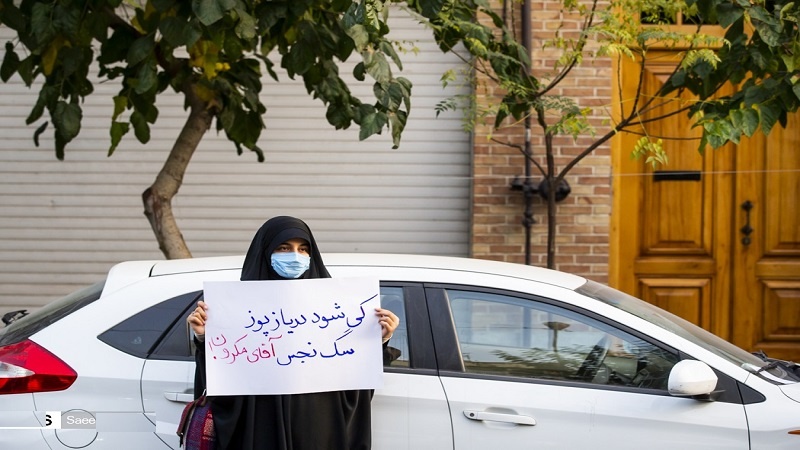 کی شود دریا ز پوز
سگ نجس آقای مکرون!
S Saee